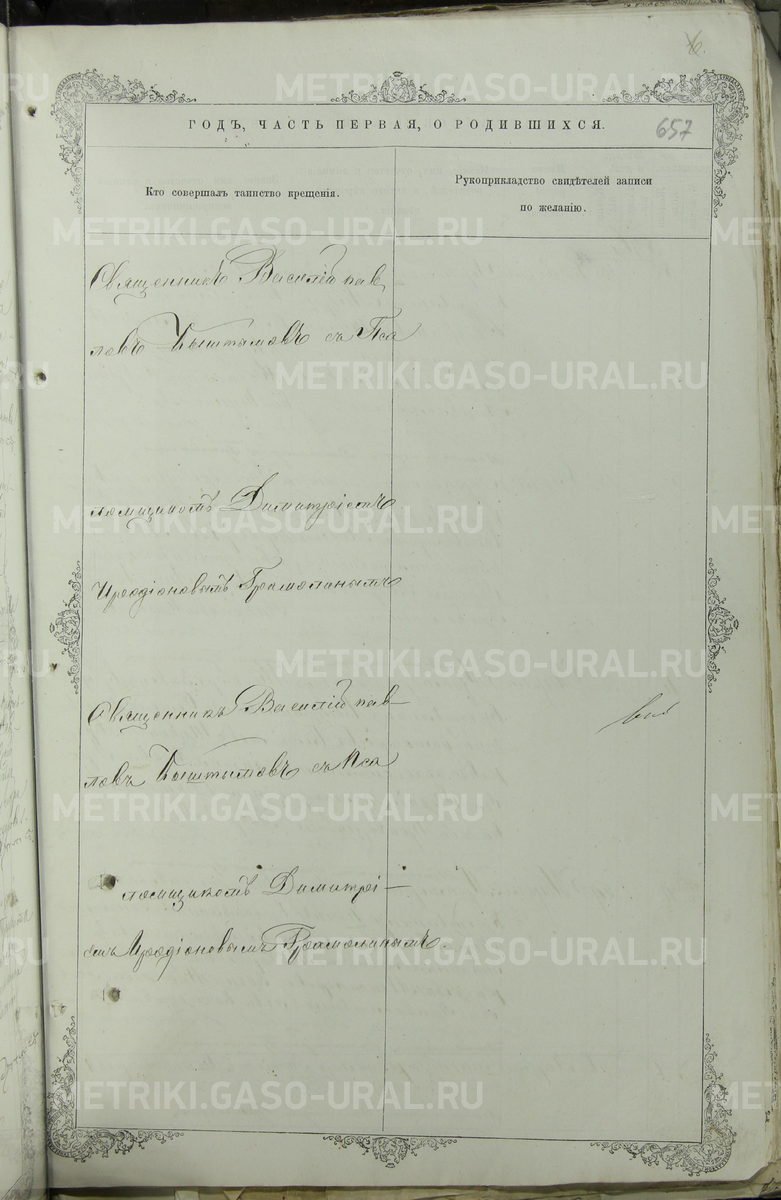 6.
ГОДЪ, ЧАСТЬ ПЕРВАЯ, О РОДИВШИХСЯ.
657
Кто совершалъ таинство крещенія.
Рукоприкладство свидѣтелей записи
по желанію.
Священникъ Василій Пав
ловъ Кыштымовъ съ Пса
ломщикомъ Димитріемъ
Иродіоновымъ
Священникъ Василій Пав-
ловъ Кыштымовъ съ Пса
ломщикомъ Димитрі-
емъ Иродіоновымъ
METRIKI.GASO-URAL.RU